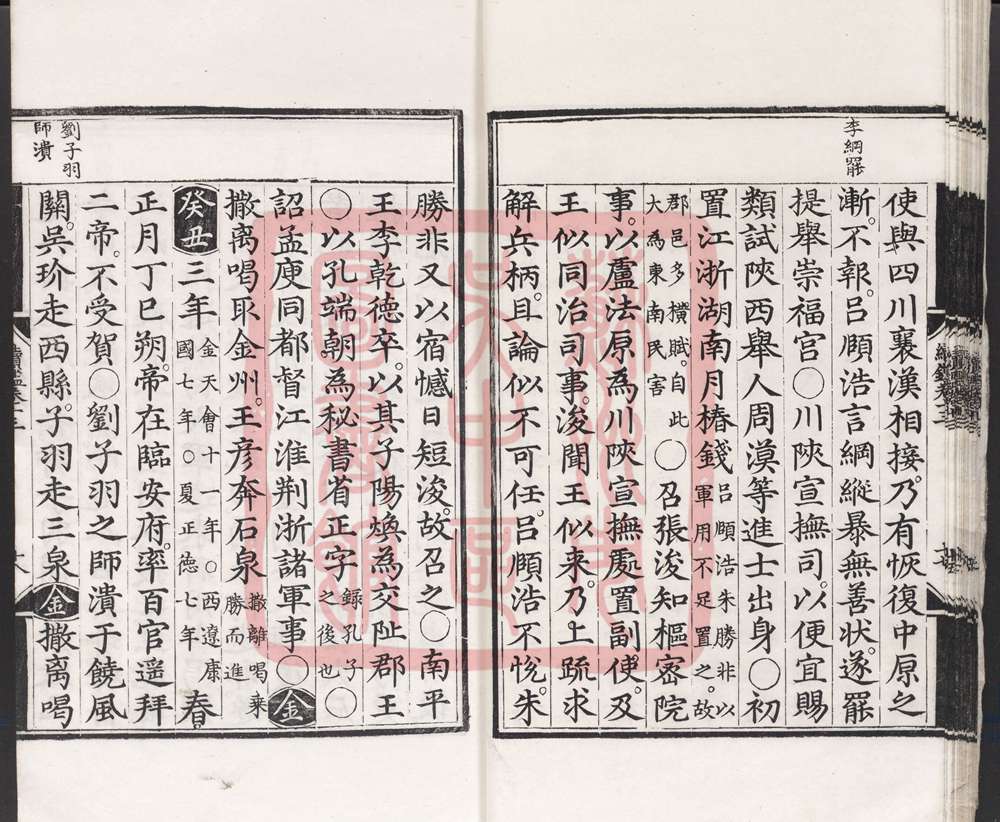 李綱罷
使與四川襄漢相接乃有恢復中原之
漸不報呂頤浩言綱縱暴無善狀遂罷
提舉崇福宮○川陝宣撫司以便宜賜
類試陝西舉人周漠等進士出身○初
置江浙湖南月樁錢呂頤浩朱勝非以軍用不足置之故郡邑多橫賦自此大為東南民害○召張浚知樞密院
事以盧法原為川陝宣撫處置副使及
王似同治司事浚聞王似来乃上疏求
解兵柄且論似不可任呂頤浩不悅朱
勝非又以宿憾日短浚故召之○南平
王李乾德卒以其子陽煥為交阯郡王
○以孔端朝為秘書省正字錄孔子之後也○
詔孟庾同都督江淮荆浙諸軍事○金
撒离喝取金州王彦奔石泉撒離喝乗勝而進
癸丑三年金天會十一年○西遼康國七年○夏正德七年春
正月丁巳朔帝在臨安府率百官遥拜
二帝不受賀○劉子羽之師潰于饒風
關吳玠走西縣子羽走三泉金撒离喝
劉子羽
師潰